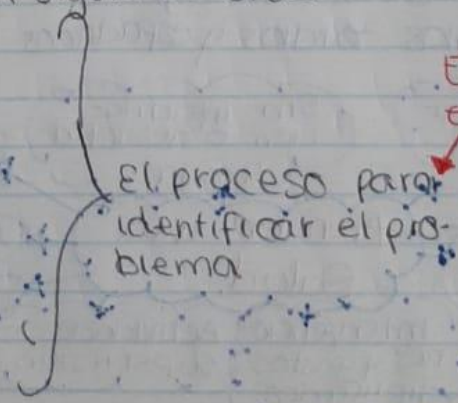 El proceso parar
identificar el pro-
blema